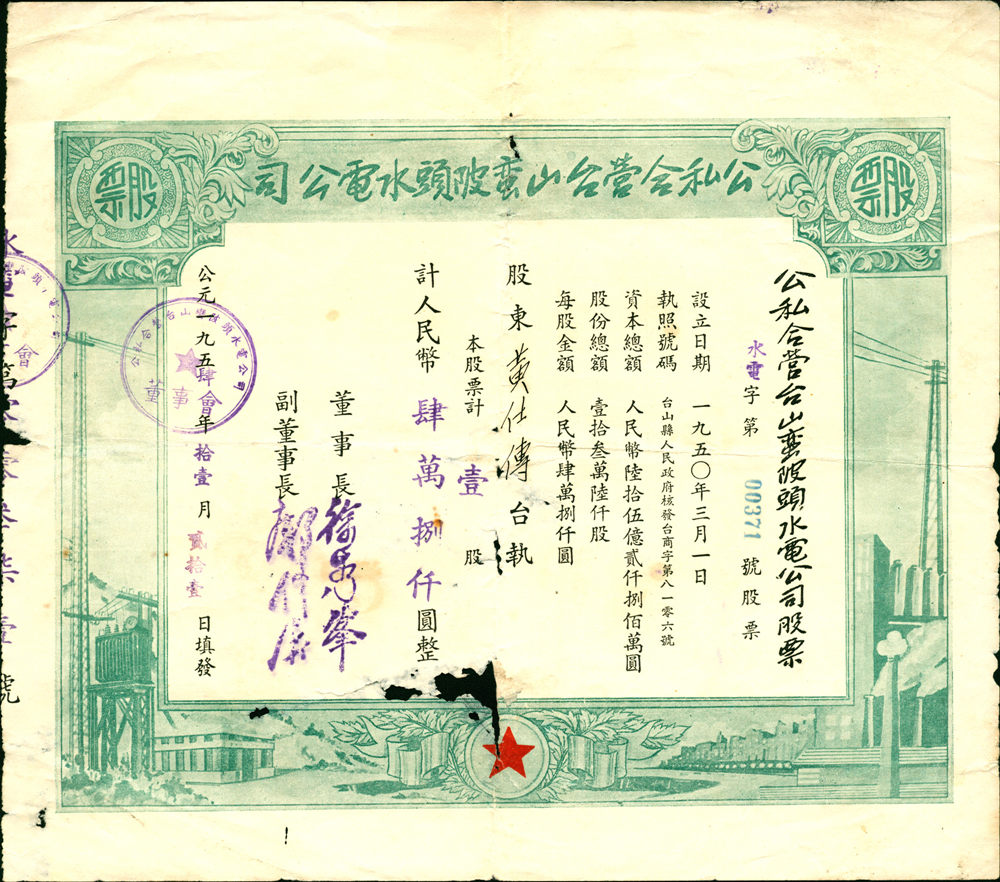 公私合營台山蛮陂頭水電公司
股票
股票
公私合營台山蛮陂頭水電公司股票
水電字第 00371 號股票
設立日期 一九五〇年三月一日
執照號碼 台山縣人民政府核發台商字第八一零六號
資本總額 人民幣陸拾伍億貳仟捌佰萬圓
股份總額 壹拾叁萬陸仟股
每股金額 人民幣肆萬捌仟圓
股東 黃仕傳 台執
本股票計 壹 股
計人民幣 肆萬捌仟 圓整
董事長
副董事長
公元一九五肆年拾壹月貳拾壹日填發
公私合營台山蛮陂頭水電公司
董事會
會
水電字第
叁柒壹號